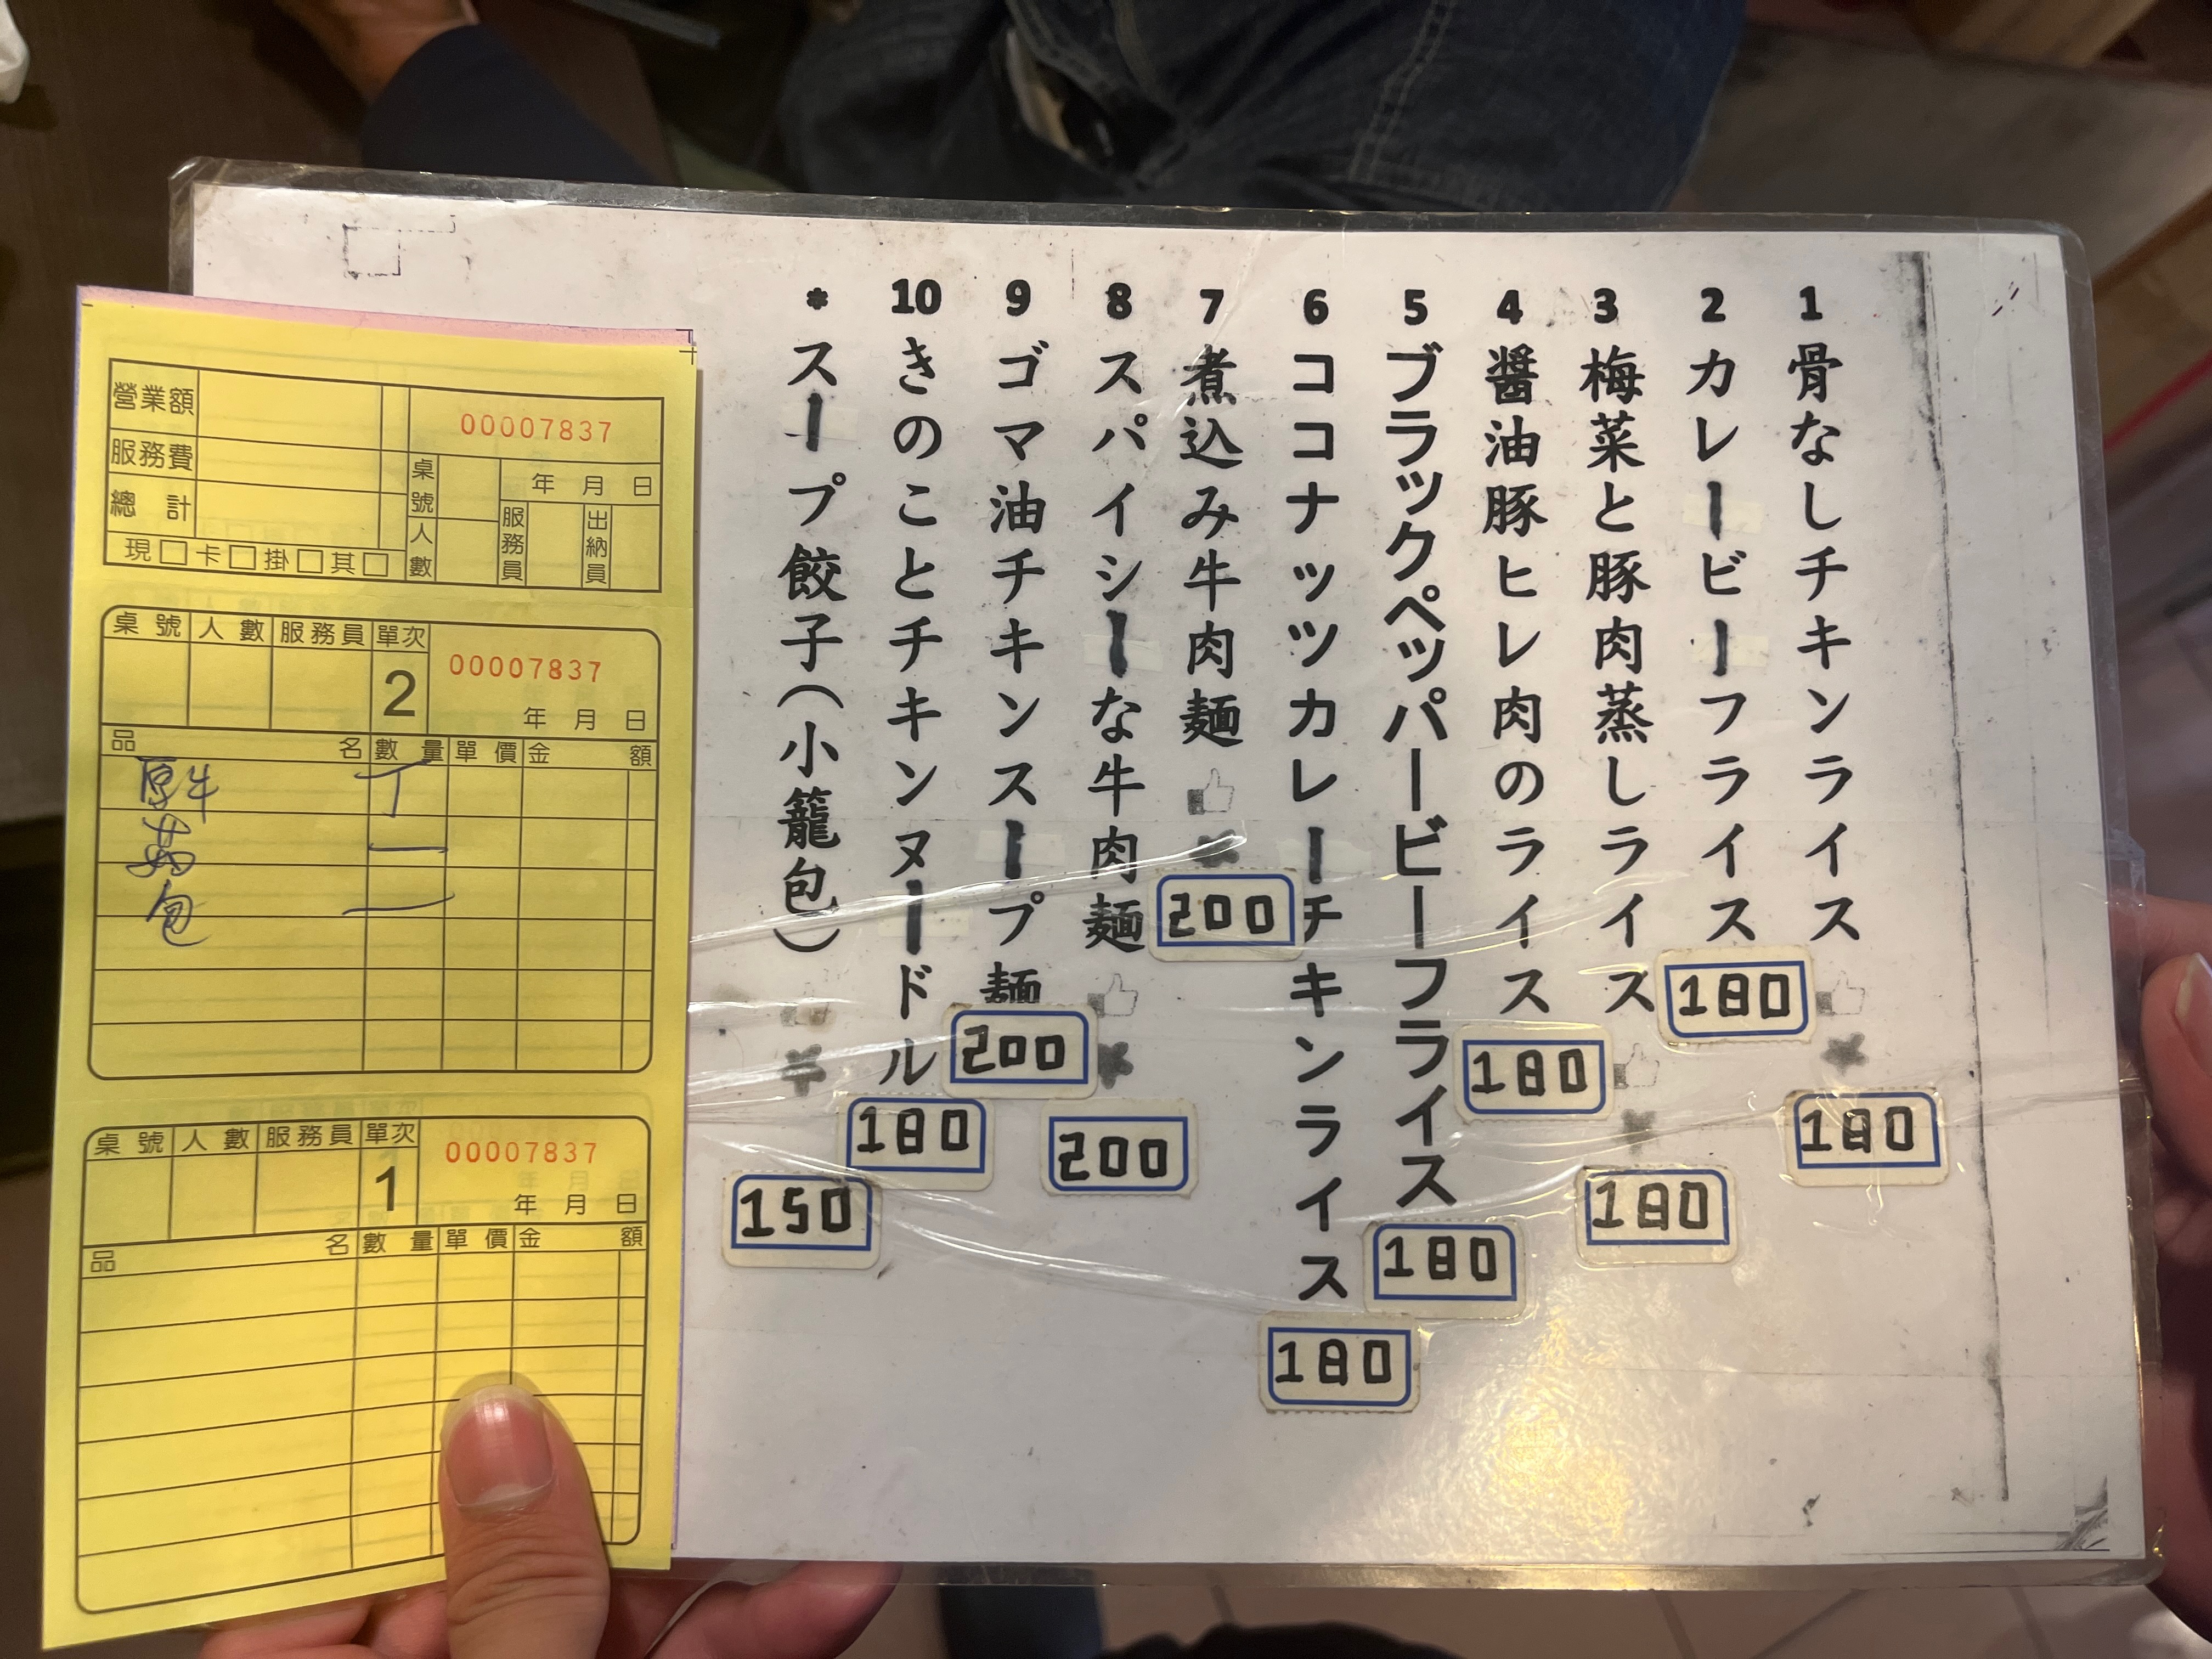 1 骨なしチキンライス
180
2 カレービーフライス
180
3 梅菜と豚肉蒸しライス
180
4 醤油豚ヒレ肉のライス
180
5 ブラックペッパービーフライス
180
6 ココナッツカレーチキンライス
180
7 煮込み牛肉麺
200
8 スパイシーな牛肉麺
200
9 ゴマ油チキンスープ麺
200
10 きのことチキンヌードル
180
* スープ餃子(小籠包)
150
營業額
服務費
總計
現□卡□掛□其□
00007837
桌號
人數
年 月 日
服務員
出納員
桌號 人數 服務員 單次
2
00007837
年 月 日
品名 數量 單價 金額
原牛 丅
菇 一
包 一
桌號 人數 服務員 單次
1
00007837
年 月 日
品名 數量 單價 金額